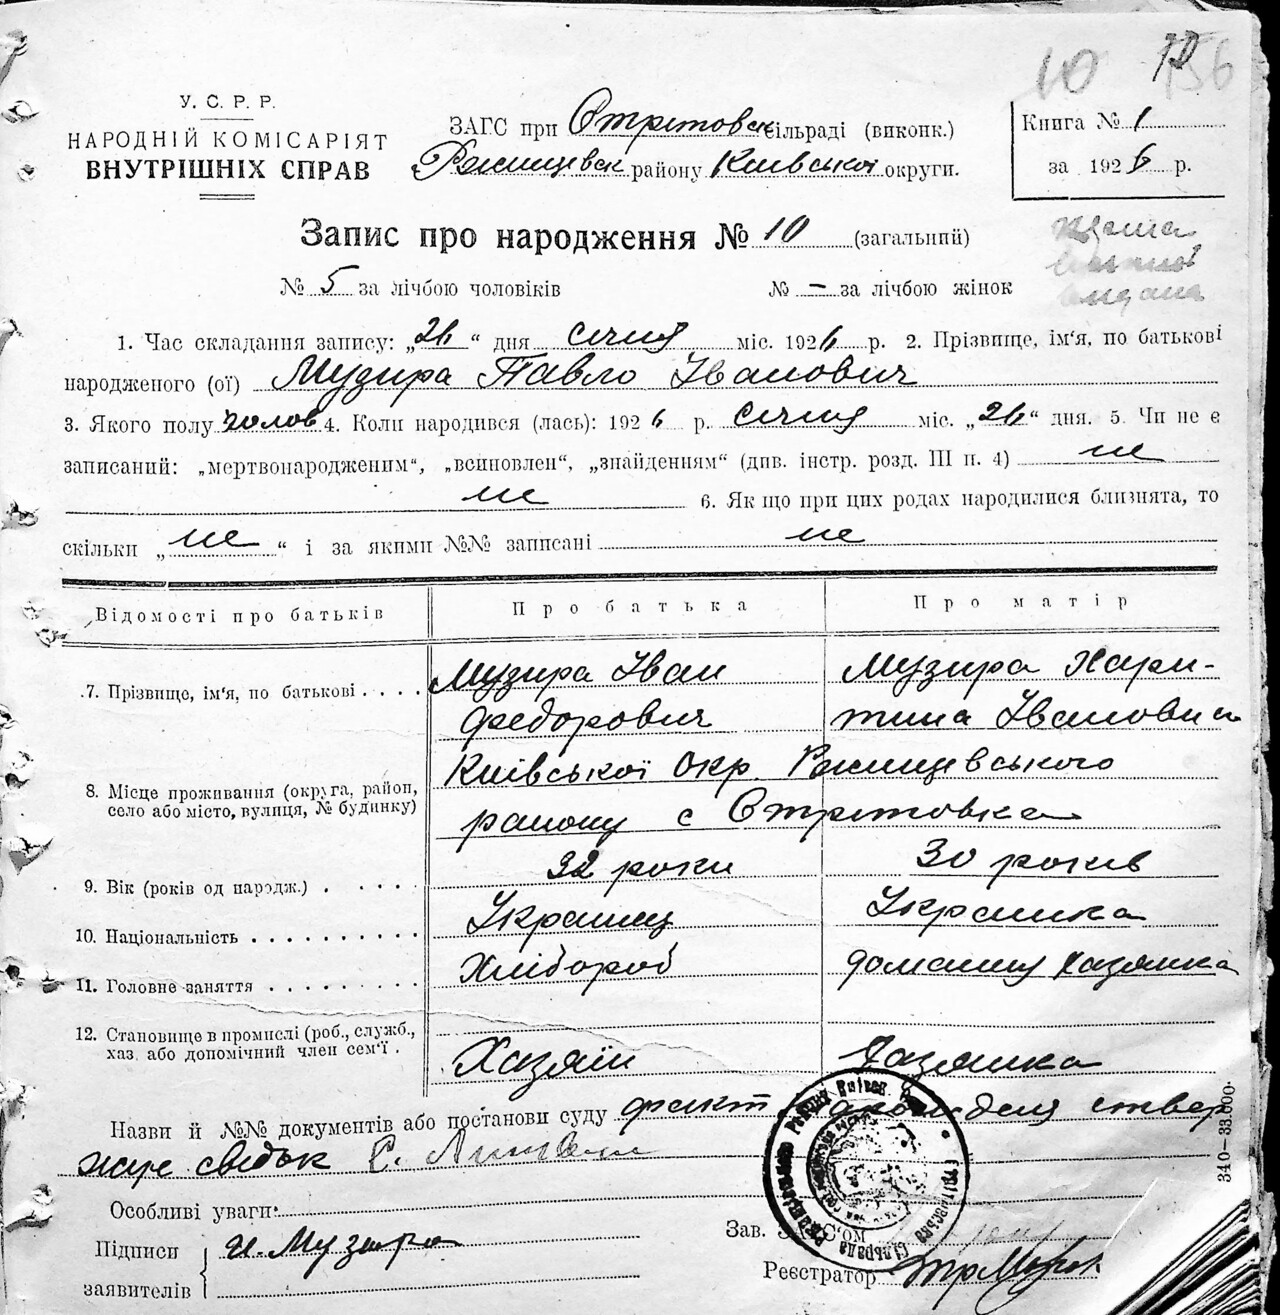 10 156
У. С. Р. Р.
НАРОДНІЙ КОМІСАРІЯТ
ВНУТРІШНІХ СПРАВ
ЗАГС при Стритовск сільраді (виконк.)
Ржищевск району Київської округи.
Книга № 1
за 1926 р.
Запис про народження № 10 (загальний)
№ 5 за лічбою чоловіків № – за лічбою жінок
1. Час складання запису: „26“ дня січня міс. 1926 р. 2. Прізвище, ім‘я, по батькові
народженого (ої) Музира Павло Іванович
3. Якого полу чолов 4. Коли народився (лась): 1926 р. січня міс. „26“ дня. 5. Чи не є
записаний: „мертвонародженим“, „всиновлен“, „знайденням“ (див. інстр. розд. III п. 4) не
не 6. Як що при цих родах народилися близнята, то
скільки „не“ і за якими №№ записані не
Відомості про батьків Про батька Про матір
7. Прізвище, ім‘я, по батькові . . . . Музира Іван Музира Хари-
Федорович тина Івановна
8. Місце проживання (округа, район, село або місто, вулиця, № будинку) Київської Окр. Ржищевського
району с Стритовка
9. Вік (років од народж.) . . . . 32 роки 30 років
10. Національність . . . . . . . . . . Украинец Украинка
11. Головне заняття . . . . . . . . . Хлібороб домашня хазяйка
12. Становище в промислі (роб., служб., хаз. або допомічний член сем‘ї . Хазяїн Хазяйка
Назви й №№ документів або постанови суду факт ствер
жує свідок С.
Особливі уваги:
Підписи заявителів И. Музыра
Зав. ЗАГС‘ом
Реєстратор
340—33.000.